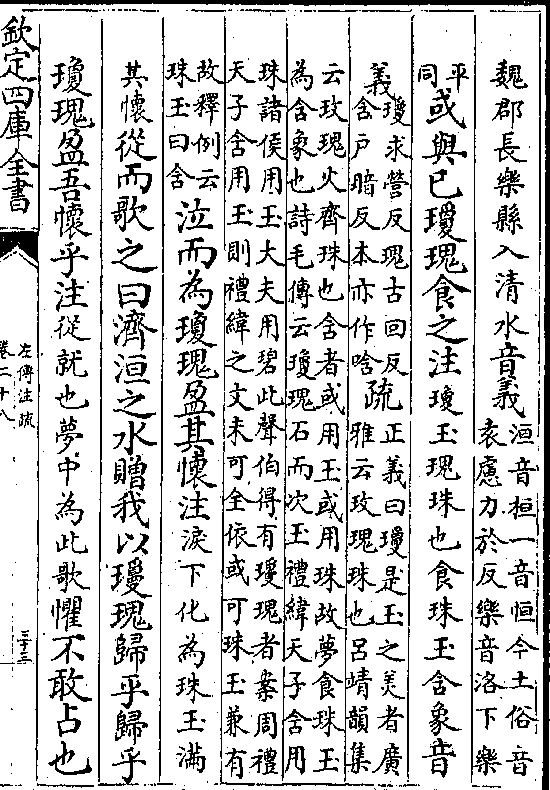 魏郡長樂縣入清水音義洹音桓一音恒今土俗音
袁慮力於反樂音洛下樂
平
同
或與已瓊瑰食之注瓊玉瑰珠也食珠玉含象音
義瓊求營反瑰古回反
含戶暗反本亦作唅
疏正義曰瓊是玉之美者廣
雅云玫瑰珠也呂靖韻集
云玫瑰火齊珠也含者或用玉或用珠故夢食珠玉
為含象也詩毛傳云瓊瑰石而次玉禮緯天子含用
珠諸侯用玉大夫用碧此聲伯得有瓊瑰者案周禮
天子含用玉則禮緯之文未可全依或可珠玉兼有
故釋例云
珠玉曰含
泣而為瓊瑰盈其懷注淚下化為珠玉滿
其懷從而歌之曰濟洹之水贈我以瓊瑰歸乎歸乎
瓊瑰盈吾懷乎注從就也夢中為此歌懼不敢占也
欽定四庫全書
左傳注疏
卷二十八
三十三